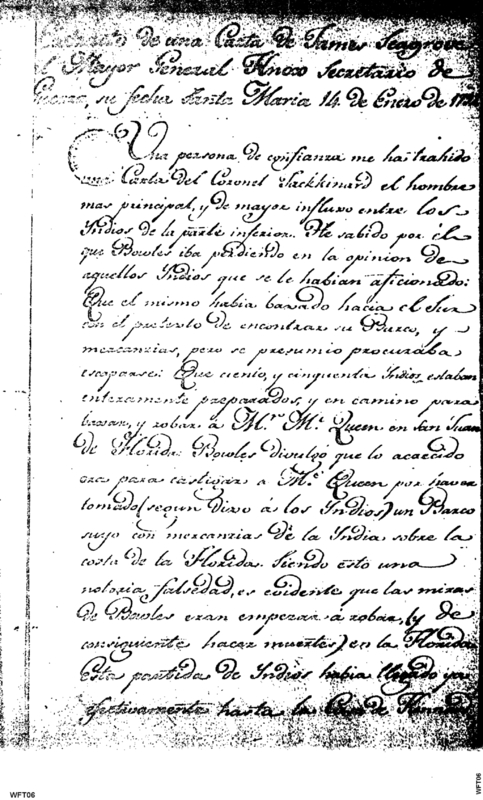 de una Carta de James Seagrove
Mayor General Knox Secretario de
Guerra, su fecha Santa Maria 14 de Enero de
Una persona de confianza me ha trahido
una Carta del Coronel Jackkinard el hombre
mas principal, y de mayor influxo entre los
Indios de la parte inferior. He sabido por él
que Bowles iba perdiendo en la opinion de
aquellos Indios que se le habian aficionado:
Que el mismo habia baxado hacia el Sur
con el pretexto de encontrar su Barco, y
mercanzias, pero se presumio procuraba
escaparse: Que ciento, y cinquenta Indios estaban
enteramente preparados, y en camino para
baxar, y robar á Mr. Mc. Queen en San Juan
de Florida: Bowles divulgó que lo acaecido
era para castigar a Mc. Queen por haver
tomado (segun dixo á los Indios) un Barco
suyo con mercanzias de la India sobre la
costa de la Florida. Siendo esto una
notoria falsedad, es evidente que las miras
de Bowles eran empezar á robar, (y de
consiguiente hacer muertes) en la Florida
Esta partida de Indios habia llegado ya
efectivamente hasta la Casa de
WFT06
WFT06